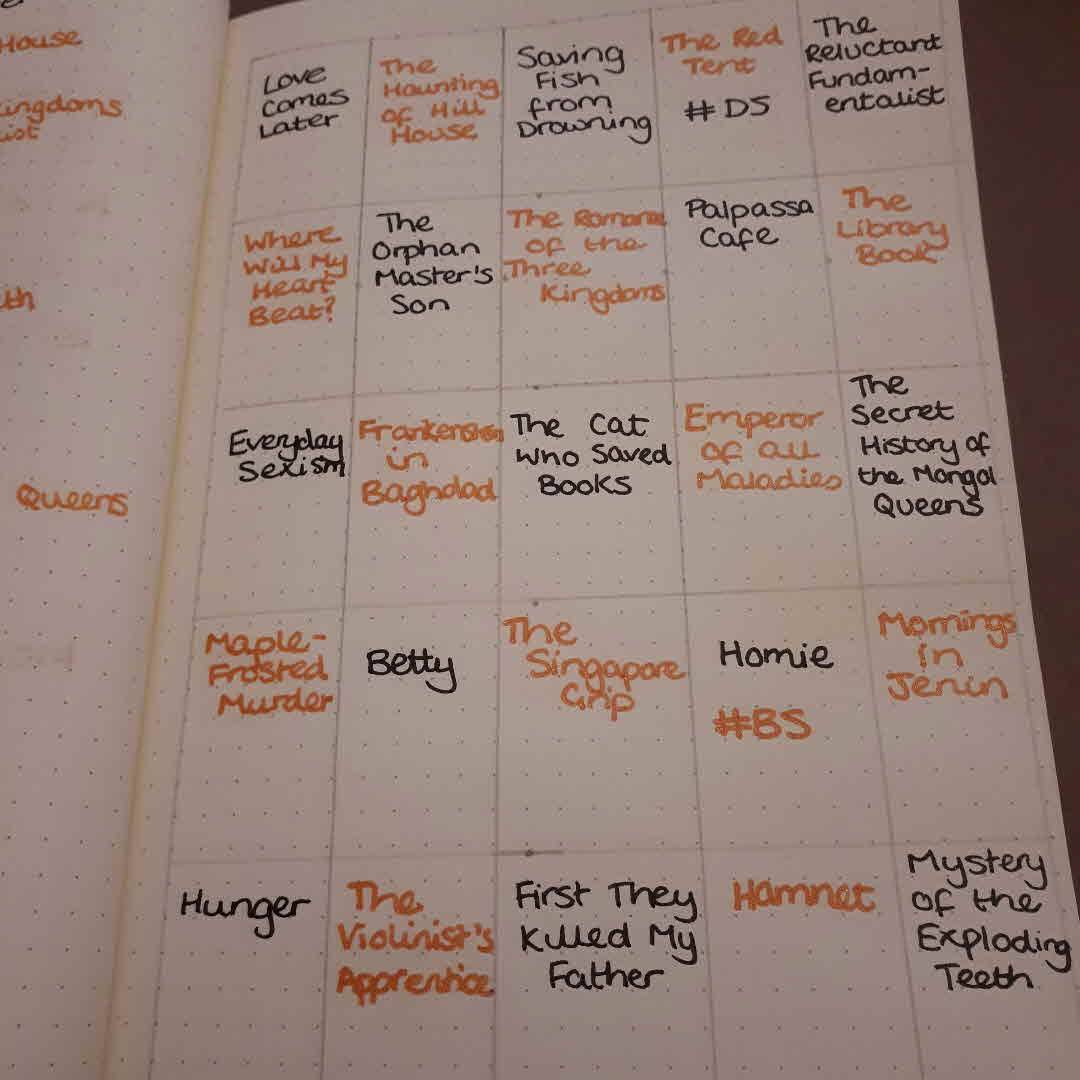 House
ingdoms
ist
th
Queens
Love
Comes
Later
The
Haunting
of Hill
House
Saving
Fish
from
Drowning
The Red
Tent
# DS
The
Reluctant
Fundam-
entalist
Where
Will My
Heart
Beat?
The
Orphan
Master's
Son
The Romance
of the
Three
Kingdoms
Palpassa
Cafe
The
Library
Book
Everyday
Sexism
Frankenstein
in
Baghdad
The Cat
Who Saved
Books
Emperor
of all
Maladies
The
Secret
History of
the Mongol
Queens
Maple-
Frosted
Murder
Betty
The
Singapore
Grip
Homie
#BS
Mornings
in
Jenin
Hunger
The
Violinist's
Apprentice
First They
Killed My
Father
Hamnet
Mystery
of the
Exploding
Teeth